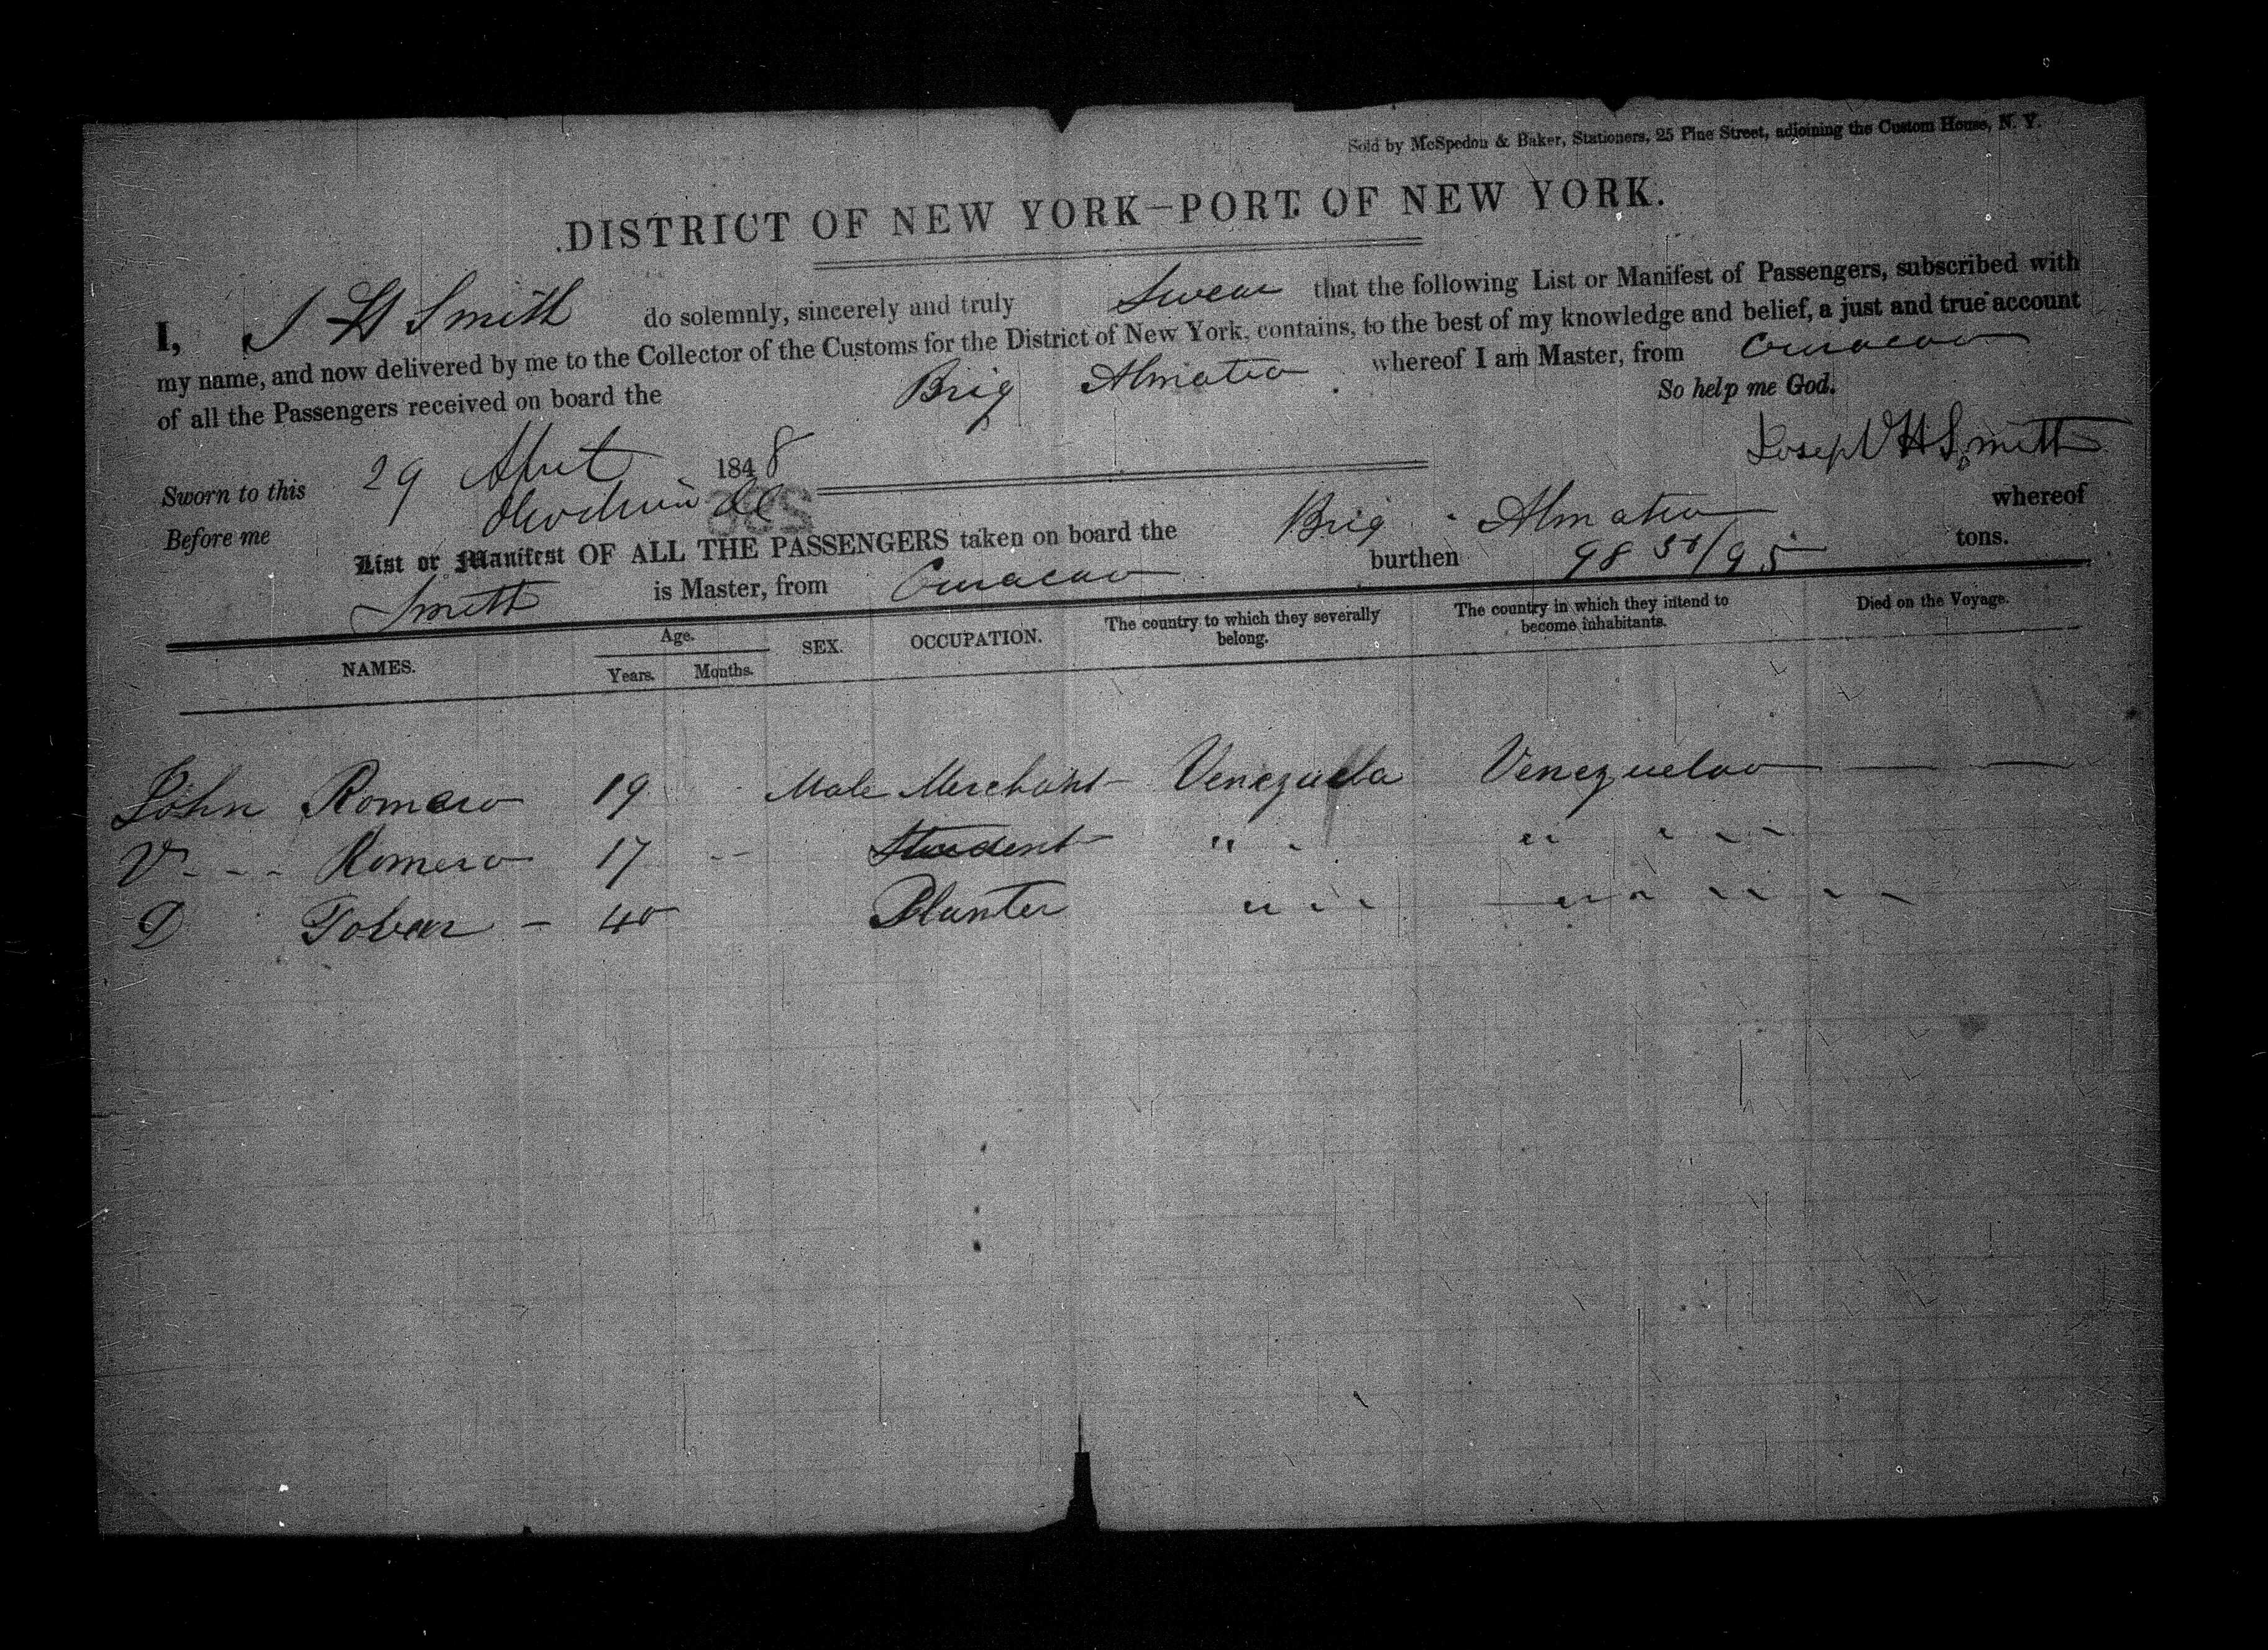 Sold by McSpedon & Baker, Stationers, 25 Pine Street, adjoining the Custom House, N. Y.
DISTRICT OF NEW YORK—PORT OF NEW YORK.
I, J H Smith do solemnly, sincerely and truly Swear that the following List or Manifest of Passengers, subscribed with
my name, and now delivered by me to the Collector of the Customs for the District of New York, contains, to the best of my knowledge and belief, a just and true account
of all the Passengers received on board the Brig Almatia whereof I am Master, from Curacao
So help me God.
Joseph H Smith
Sworn to this 29 April 1848
Before me
List or Manifest OF ALL THE PASSENGERS taken on board the Brig Almatia whereof
Smith is Master, from Curacao burthen 98 50/95 tons.
NAMES. Age. Years. Months. SEX. OCCUPATION. The country to which they severally belong. The country in which they intend to become inhabitants. Died on the Voyage.
John Romero 19 Male Merchant Venezuela Venezuela — —
V - - - Romero 17 - - Student " - " - - -
D Tobar - 40 Planter " - - " - - - - -